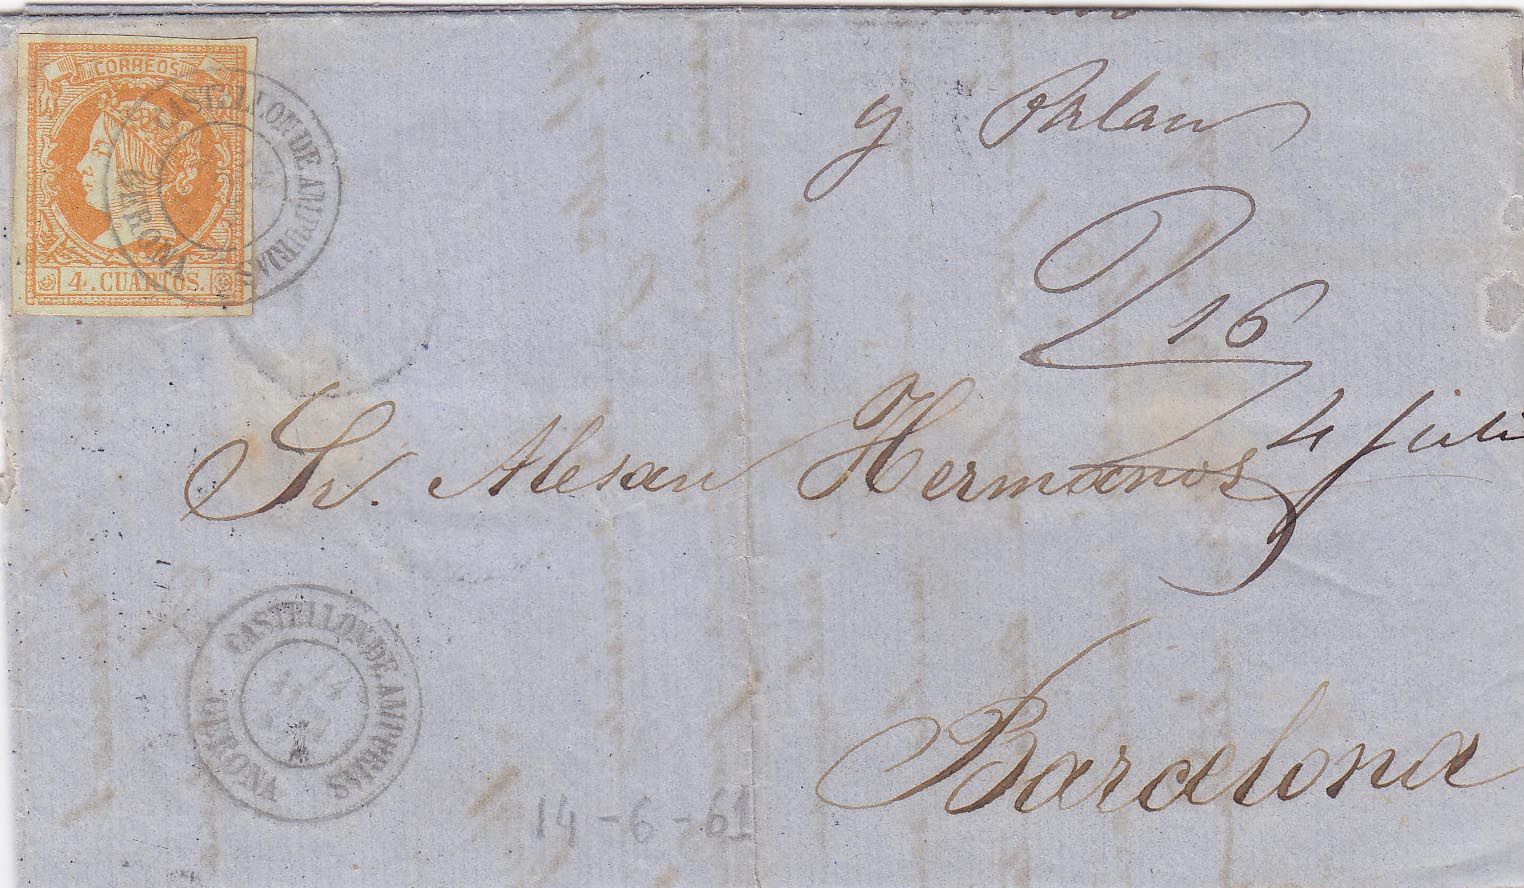 CORREOS
4. CUARTOS.
CASTELLON DE AMPURIAS
GERONA
y Palau
16
4 Juli
Sr. Alesan Hermanos
CASTELLON DE AMPURIAS
GERONA
14
Barcelona
14-6-61